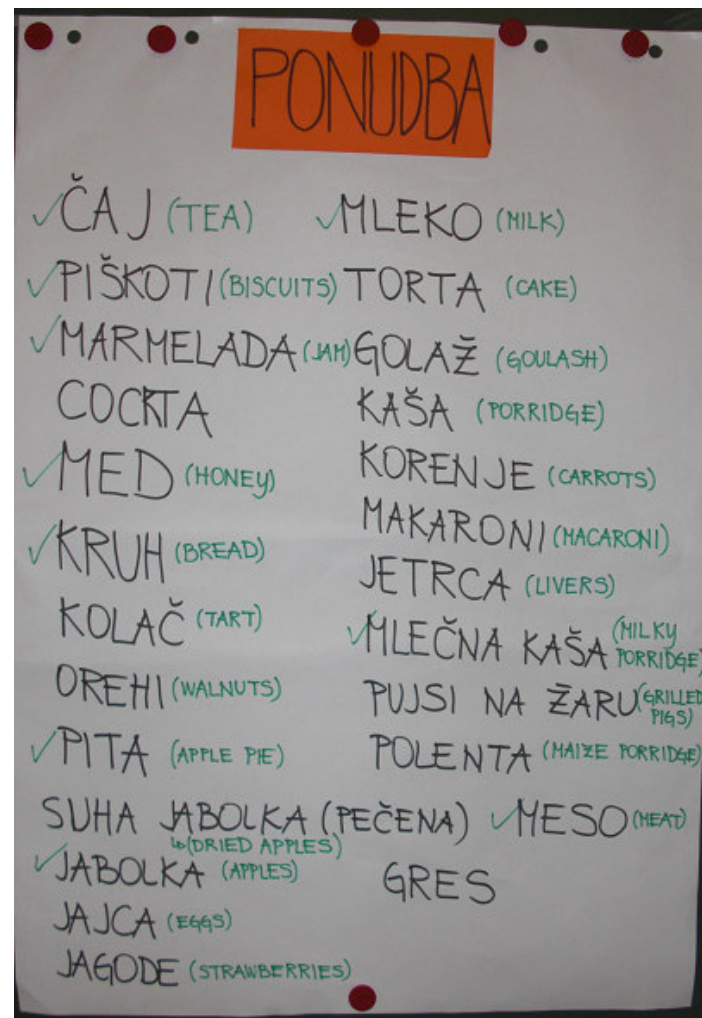 PONUDBA
ČAJ (TEA)
PIŠKOTI (BISCUITS)
MARMELADA (JAM)
COCKTA
MED (HONEY)
KRUH (BREAD)
KOLAČ (TART)
OREHI (WALNUTS)
PITA (APPLE PIE)
SUHA JABOLKA (PEČENA)
(DRIED APPLES)
JABOLKA (APPLES)
JAJCA (EGGS)
JAGODE (STRAWBERRIES)
MLEKO (MILK)
TORTA (CAKE)
GOLAŽ (GOULASH)
KAŠA (PORRIDGE)
KORENJE (CARROTS)
MAKARONI (MACARONI)
JETRCA (LIVERS)
MLEČNA KAŠA (MILKY
PORRIDGE)
PUJSI NA ŽARU (GRILLED
PIGS)
POLENTA (MAIZE PORRIDGE)
MESO (MEAT)
GRES